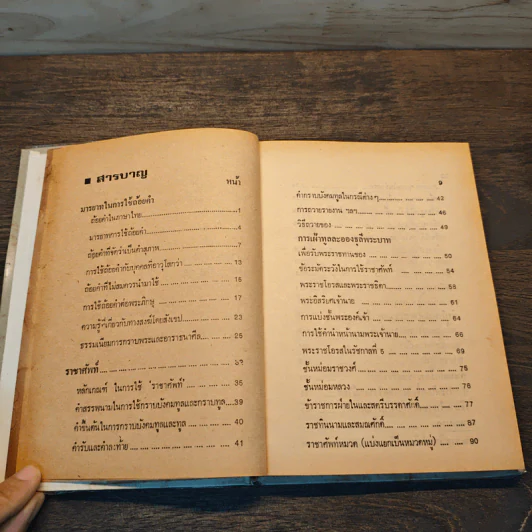 ■ สารบาญ
หน้า
มารยาทในการใช้ถ้อยคำ
ถ้อยคำในภาษาไทย 1
มารยาทการใช้ถ้อยคำ 4
ถ้อยคำที่จัดว่าเป็นคำสุภาพ 7
การใช้ถ้อยคำกับบุคคลที่อาวุโสกว่า 13
ถ้อยคำที่ไม่สมควรนำมาใช้ 15
การใช้ถ้อยคำต่อพระภิกษุ 17
ความรู้เกี่ยวกับทางสงฆ์โดยสังเขป 23
ธรรมเนียมการกราบพระและอาราธนาศีล 25
ราชาศัพท์
หลักเกณฑ์ ในการใช้ 'ราชาศัพท์' 35
คำสรรพนามในการใช้กราบบังคมทูลและกราบทูล 39
คำขึ้นต้นในการกราบบังคมทูลและทูล 40
คำรับและคำลงท้าย 41
9
คำกราบบังคมทูลในกรณีต่างๆ 42
การถวายรายงาน ฯลฯ 46
วิธีถวายของ 49
การเฝ้าทูลละอองธุลีพระบาท
เพื่อรับพระราชทานของ 50
ข้อระมัดระวังในการใช้ราชาศัพท์ 54
พระราชโอรสและพระราชธิดา 58
พระอิสริยศเจ้านาย 61
การแบ่งชั้นพระองค์เจ้า 64
การใช้คำนำหน้านามพระเจ้านาย 66
พระราชโอรสในรัชกาลที่ 5 69
ชั้นหม่อมราชวงศ์ 75
ชั้นหม่อมหลวง 76
ข้าราชการฝ่ายในและสตรีบรรดาศักดิ์ 77
ราชทินนามและสมณศักดิ์ 87
ราชาศัพท์หมวด (แบ่งแยกเป็นหมวดหมู่) 90